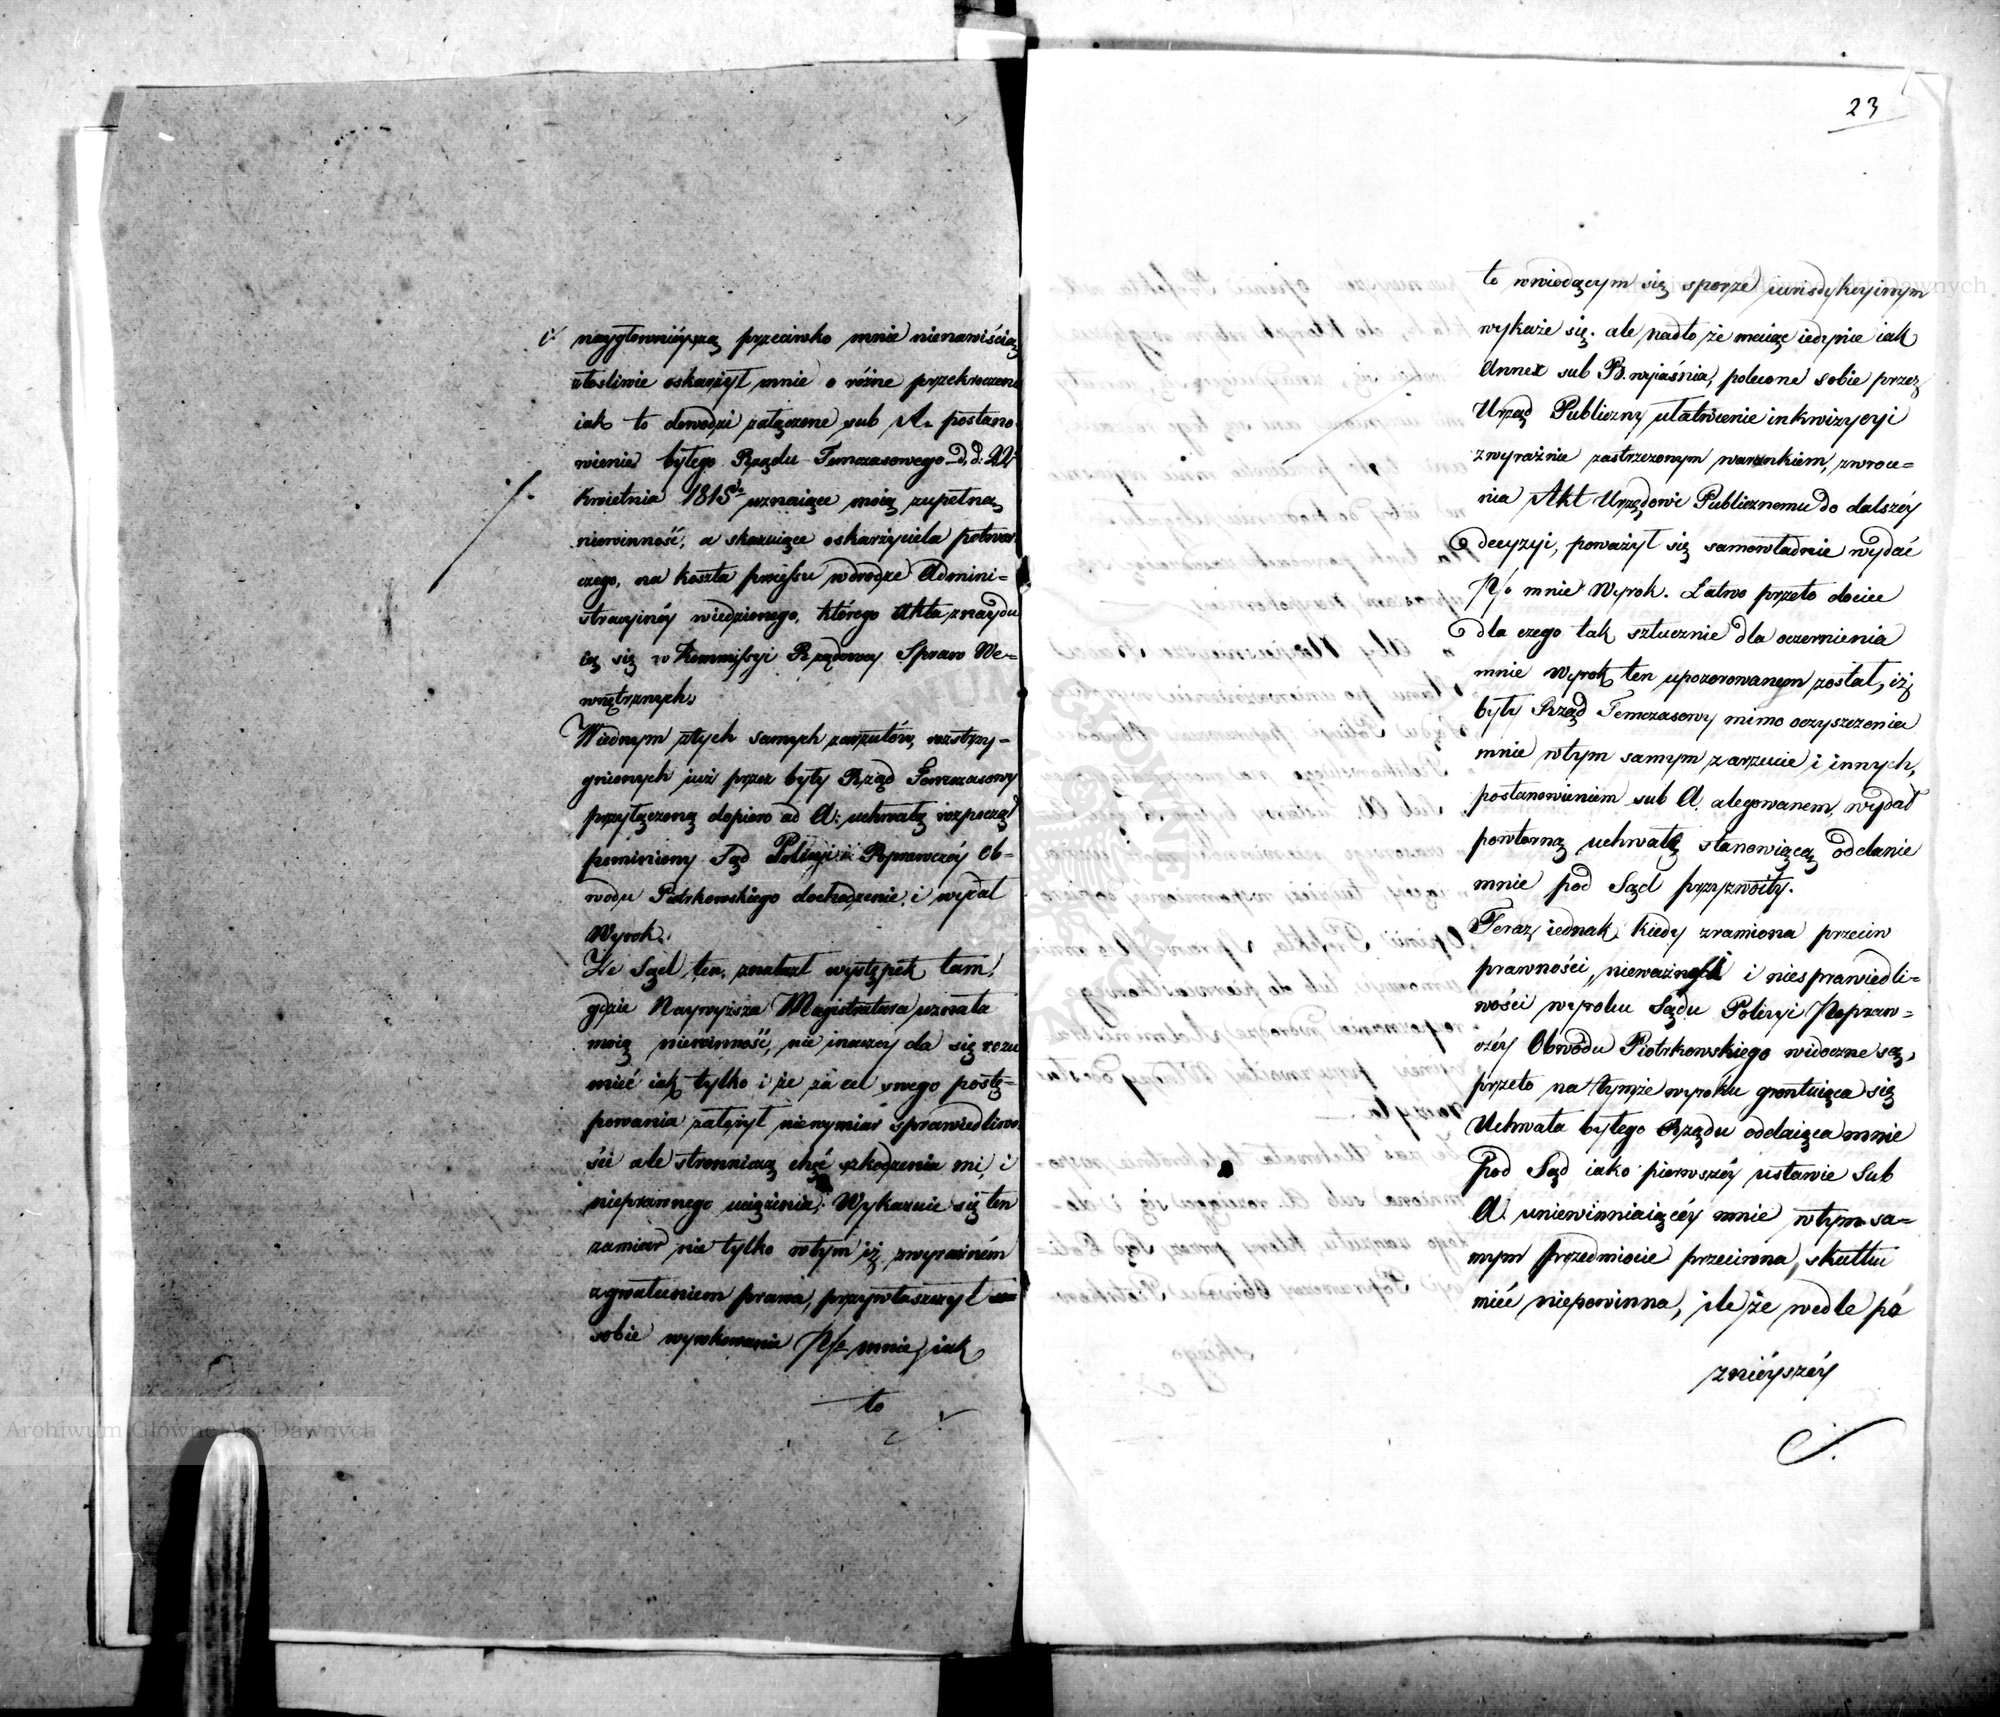 i naygłownieyszą przeciwko mnie nienawiścią
złosliwie oskarżył mnie o różne przekroczenia
iak to dowodzi załączone sub A. postano-
wienie byłego Rządu Temczasowego d.d: 22
Kwietnia 1815 uznaiące moią zupełną
niewinność, a skazuiące oskarżyciela potwar-
czego, na koszta processu wdrodze Admini=
stracyinéy wiedzionego, którego Akta znaydu
ią się w Kommissyi Rządowey Spraw We=
wnętrznych.
Wiednym ztych samych zarzutów, rozstrzy=
gnionych iuż przez były Rząd Temczasowy
przyłączoną dopiero ad A: uchwałą rozpoczął
pominiony Sąd Policyi Poprawczéy Ob=
wodu Piotrkowskiego dochodzenie, i wydał
Wyrok.
Że Sąd ten, znalazł występek tam,
gdzie Naywyższa Magistratura uznała
moią niewinność, nie inaczey da się rozu
mieć iak tylko i że za cel swego postę=
powania założył niewymiar sprawiedliwo
ści ale stronniczą chęć szkodzenia mi, i
nieprawnego uciążenia. Wykazuie się ten
zamiar nie tylko wtym iż, zwyraźném
zgwałceniem prawa, przywłaszczył
sobie wyrokowanie P/o mnie, iak
to
23
to wwiodącym się sporze iurisdykcyinym
wykaże się. ale nadto że maiąc iedynie iak
Annex sub B. wyiaśnia, polecone sobie przez
Urząd Publiczny ułatwienie inkwizycyi
zwyraźnie zastrzeżonym warunkiem, zwroce=
nia Akt Urzędowi Publicznemu do dalszéy
decyzyi, poważył się samowładnie wydać
P/o mnie Wyrok. Łatwo przeto dociec
dla czego tak sztucznie dla oczernienia
mnie Wyrok ten upozorowanem został, iż
były Rząd Temczasowy mimo oczyszczenia
mnie wtym samym zarzucie i innych,
postanowieniem sub A. alegowanem, wydał
powtorną uchwałę stanowiącą oddanie
mnie pod Sąd przyzwoity.
Teraz iednak kiedy zramiona przeciw
prawności, nieważność i niesprawiedli=
wości wyroku Sądu Policyi Popraw=
czéy Obwodu Piotrkowskiego widoczne są,
przeto na tymże wyroku gruntuiąca się
Uchwała byłego Rządu oddaiąca mnie
Pod Sąd iako pierwszéy ustawie Sub
A. uniewinniaiącéy mnie wtym sa=
mym przedmiocie przeciwna, skutku
mieć niepowinna, ile że wedle pó
znieyszéy
Archiwum Główne Akt Dawnych
Archiwum Główne Akt Dawnych